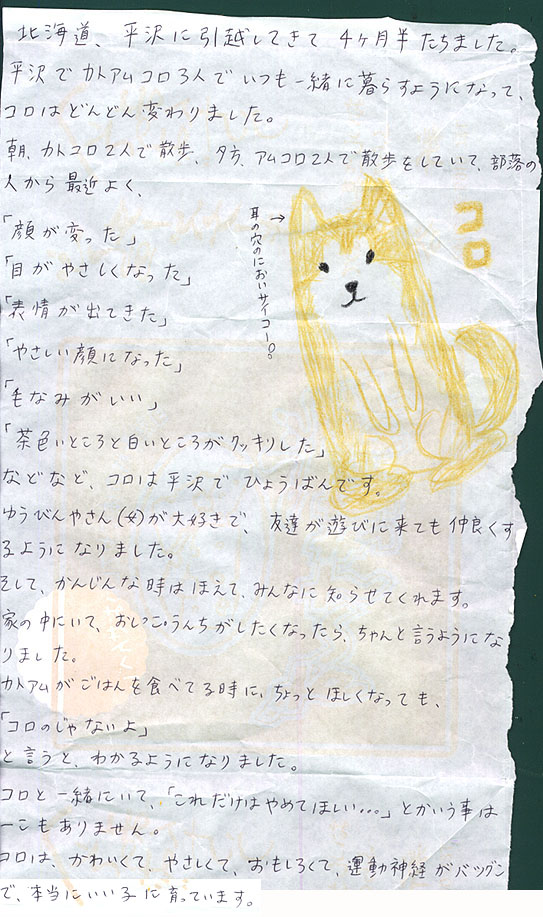 北海道、平沢に引越してきて4ヶ月半たちました。
平沢でカトアムコロ3人でいつも一緒に暮らすようになって、
コロはどんどん変わりました。
朝、カトコロ2人で散歩、夕方、アムコロ2人で散歩をしていて、部落の
人から最近よく、
「顔が変った」
「目がやさしくなった」
「表情が出てきた」
「やさしい顔になった」
「毛なみがいい」
「茶色いところと白いところがクッキリした」
などなど、コロは平沢でひょうばんです。
ゆうびんやさん(女)が大好きで、友達が遊びに来ても仲良くす
るようになりました。
そして、かんじんな時はほえて、みんなに知らせてくれます。
家の中にいて、おしっこ。うんちがしたくなったら、ちゃんと言うようにな
りました。
カトアムがごはんを食べてる時に、ちょっとほしくなっても、
「コロのじゃないよ」
と言うと、わかるようになりました。
コロと一緒にいて、「これだけはやめてほしい…。」とかいう事は
一こもありません。
コロは、かわいくて、やさしくて、おもしろくて、運動神経がバツグン
で、本当にいい子に育っています。
コロ
耳の穴のにおいサイコー。→